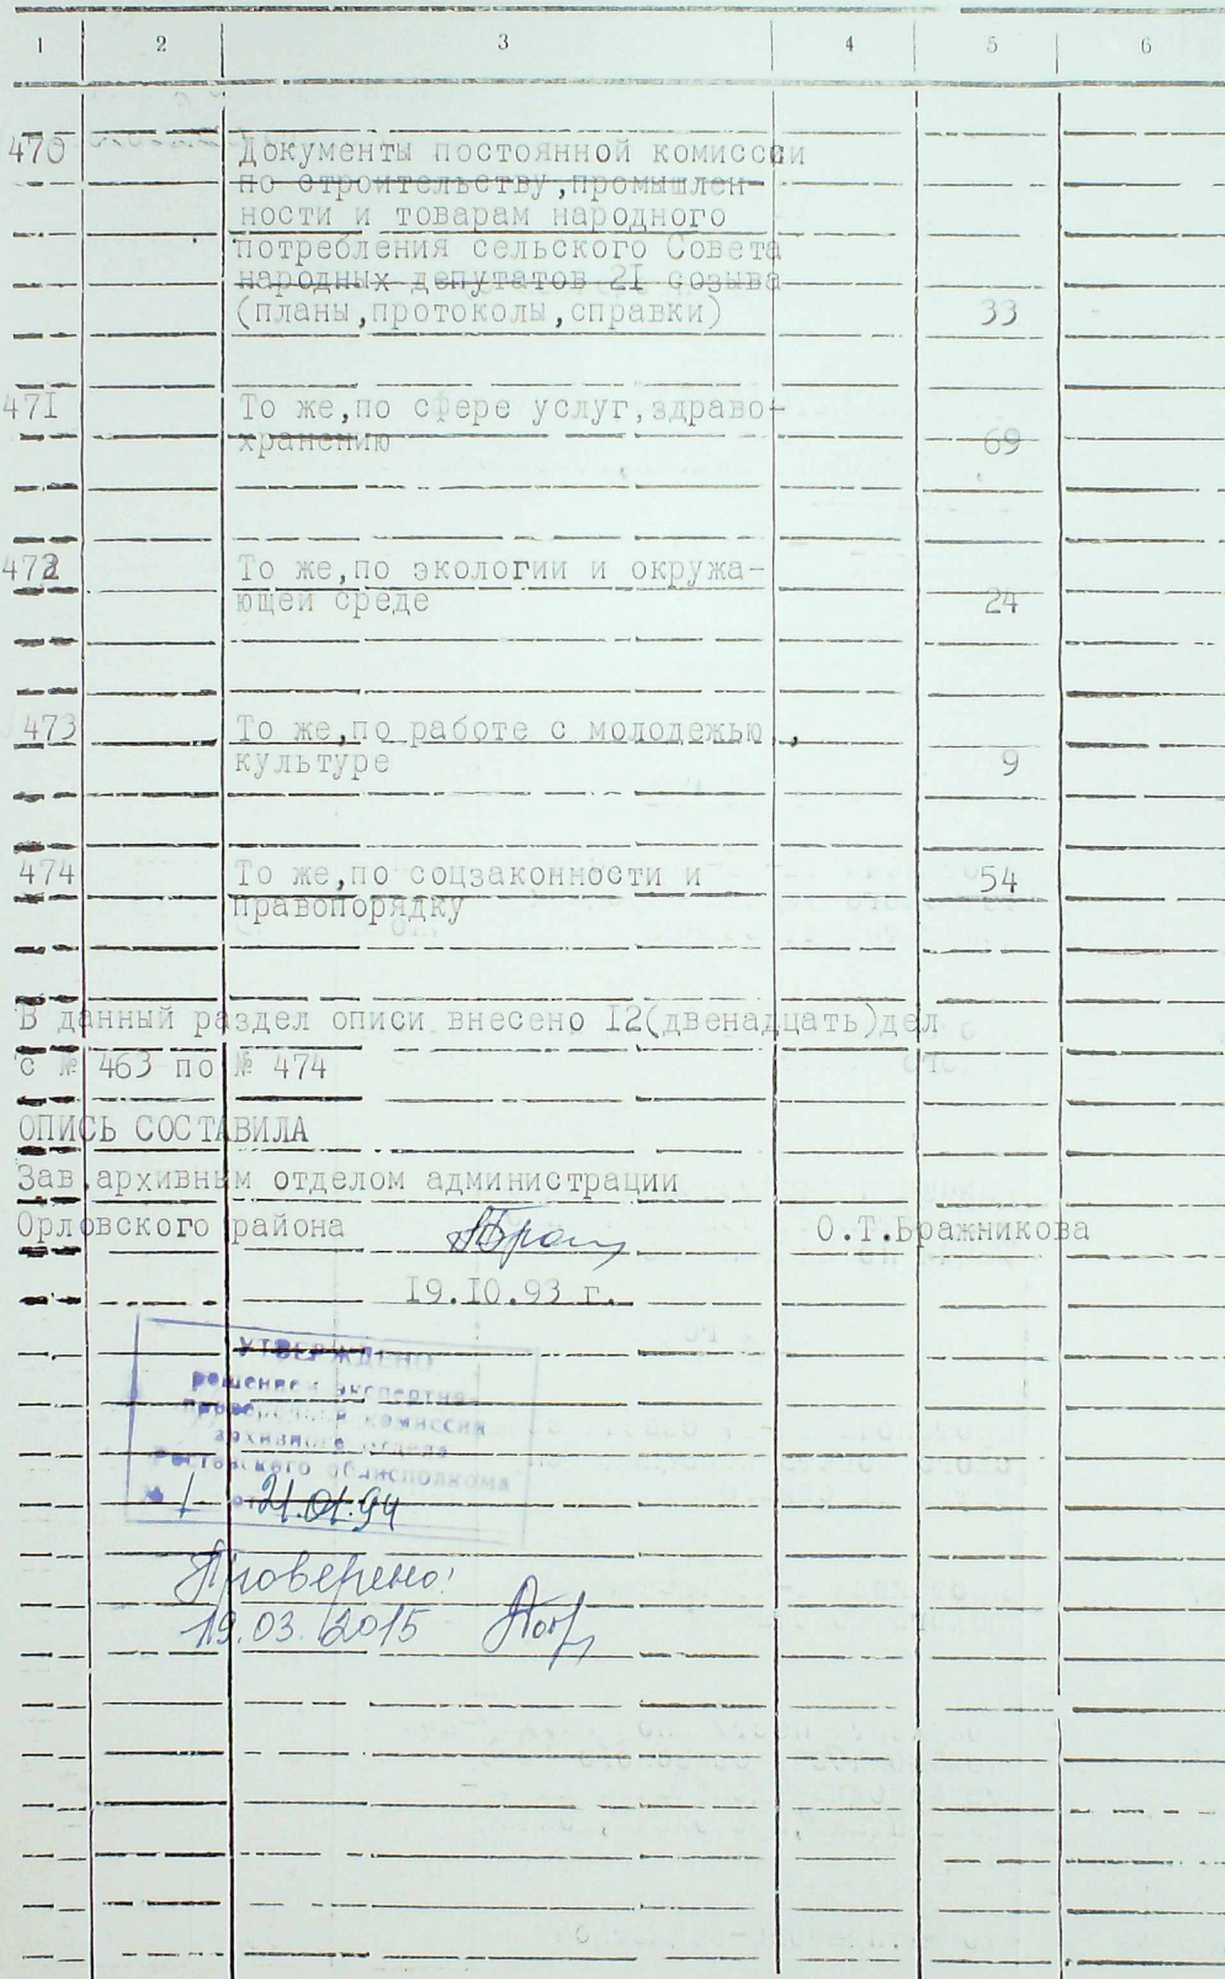 1 2 3 4 5 6
470 Документы постоянной комиссии
по строительству,промышлен-
ности и товарам народного
потребления сельского Совета
народных депутатов 2I созыва
(планы,протоколы,справки) 33
47I То же,по сфере услуг,здраво-
хранению 69
472 То же,по экологии и окружа-
ющей среде 24
473 То же,по работе с молодежью ,
культуре 9
474 То же,по соцзаконности и 54
правопорядку
В данный раздел описи внесено I2(двенадцать)дел
с № 463 по № 474
ОПИСЬ СОСТАВИЛА
Зав.архивным отделом администрации
Орловского района О.Т.Бражникова
I9.I0.93 г.
УТВЕРЖДЕНО
решением экспертно-
проверочной комиссии
архивного отдела
Ростовского облисполкома
№ 1 от 21.01.94
Проверено:
19.03.2015